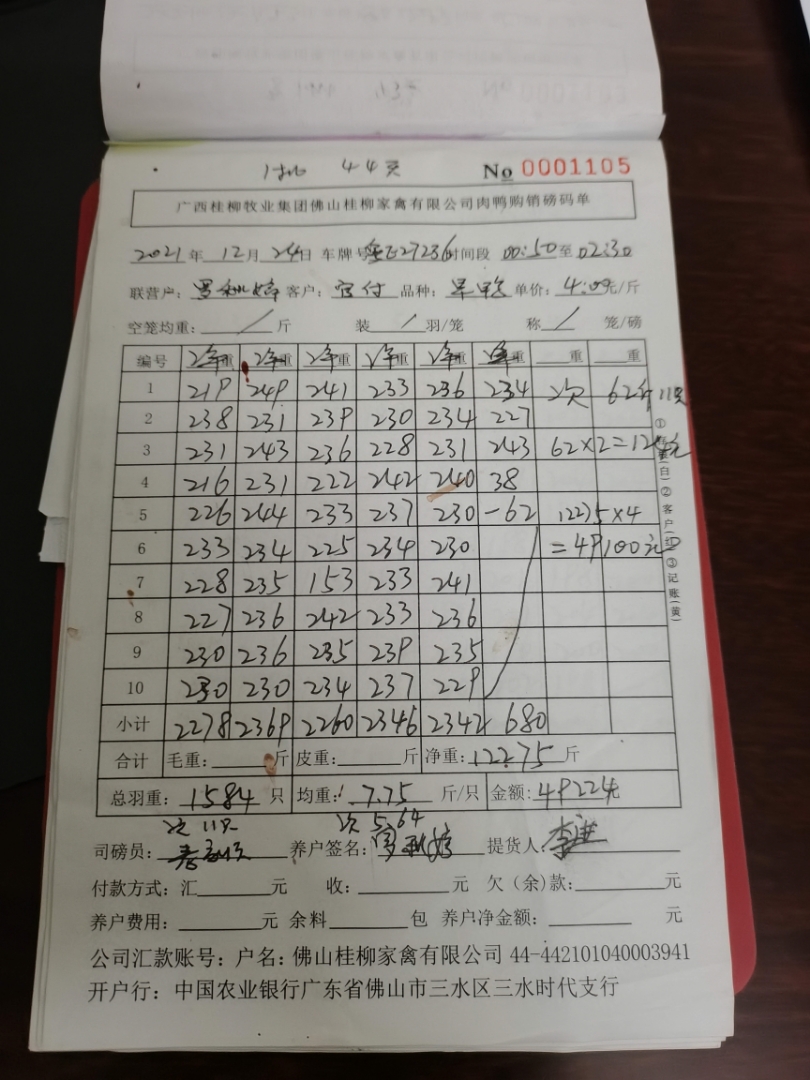 44天 No 0001105
广西桂柳牧业集团佛山桂柳家禽有限公司肉鸭购销磅码单
2021年 12月 24日 车牌号 27236 时间段 00:50 至 02:30
联营户: 客户: 品种: 单价: 4.0 元/斤
空笼均重: / 斤 装 / 羽/笼 称 / 笼/磅
编号 净重 净重 净重 净重 净重 净重 重 重
1 219 249 241 233 236 234 次 62斤 11只
2 238 231 239 230 234 227
3 231 243 236 228 231 243 62×2=124元
4 216 231 222 242 240 38
5 226 244 233 237 230 -62 12275×4
6 233 234 225 234 230 =49100元
7 228 235 153 233 241
8 227 236 242 233 236
9 230 236 235 239 235
10 230 230 234 237 229
小计 2278 2369 2260 2346 2342 680
合计 毛重: 斤 皮重: 斤 净重: 12275 斤
总羽重: 1584 只 均重: 7.75 斤/只 金额: 49224元
次 11只 次 5.64
司磅员: 养户签名: 提货人: 李
付款方式: 汇 元 收: 元 欠(余)款: 元
养户费用: 元 余料 包 养户净金额: 元
公司汇款账号: 户名: 佛山桂柳家禽有限公司 44-442101040003941
开户行: 中国农业银行广东省佛山市三水区三水时代支行
①
(白)②客户(红)③记账(黄)